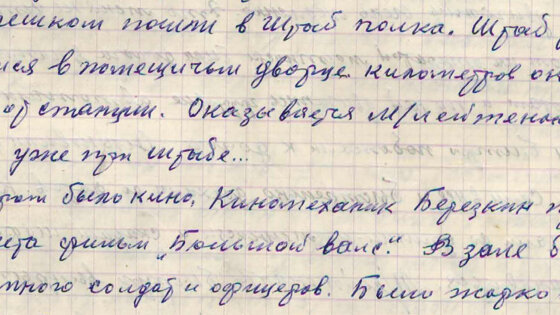 ешком пошли в штаб полка. Штаб
ися в помещичьем дворце километров
от станции. Оказывается м/лейтенан
уже при штабе...
было кино. Киномеханик Березкин
фильм „Большой вальс". В зале б
много солдат и офицеров. Было жарко